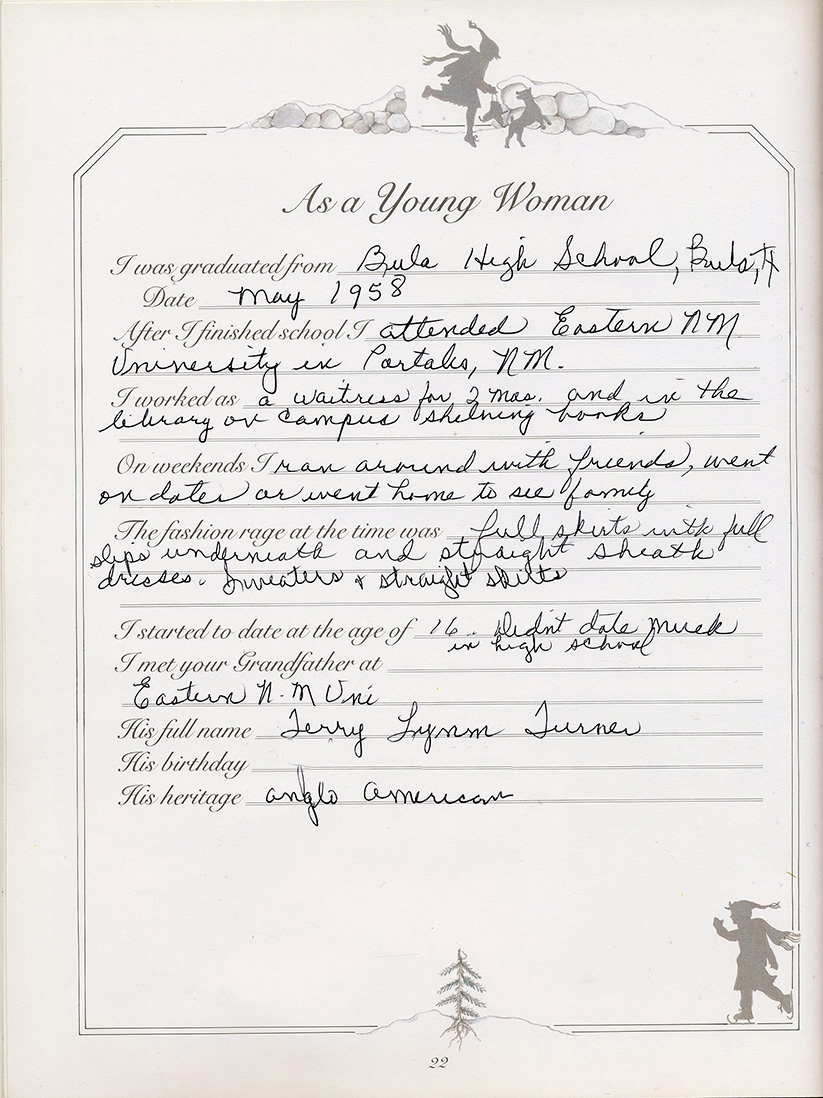 As a Young Woman
I was graduated from Bula High School, Bula, TX
Date May 1958
After I finished school I attended Eastern NM
University in Portales, NM.
I worked as a waitress for 2 mos. and in the
library on campus shelving books
On weekends I ran around with friends, went
on dates or went home to see family
The fashion rage at the time was full skirts with full
slips underneath and straight sheath
dresses. Sweaters & straight skirts
I started to date at the age of 16. Didn't date much
in high school
I met your Grandfather at
Eastern N.M Uni
His full name Terry Lynn Turner
His birthday
His heritage anglo american
22